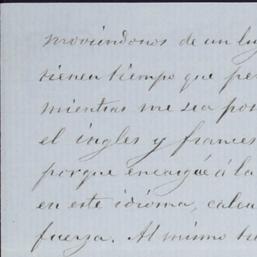 moviéndonos de un lu
tienen tiempo que pe
mientras me sea pos
el ingles y frances
porque encargué á la
en este idioma, calcu
fuerza. Al mismo ti